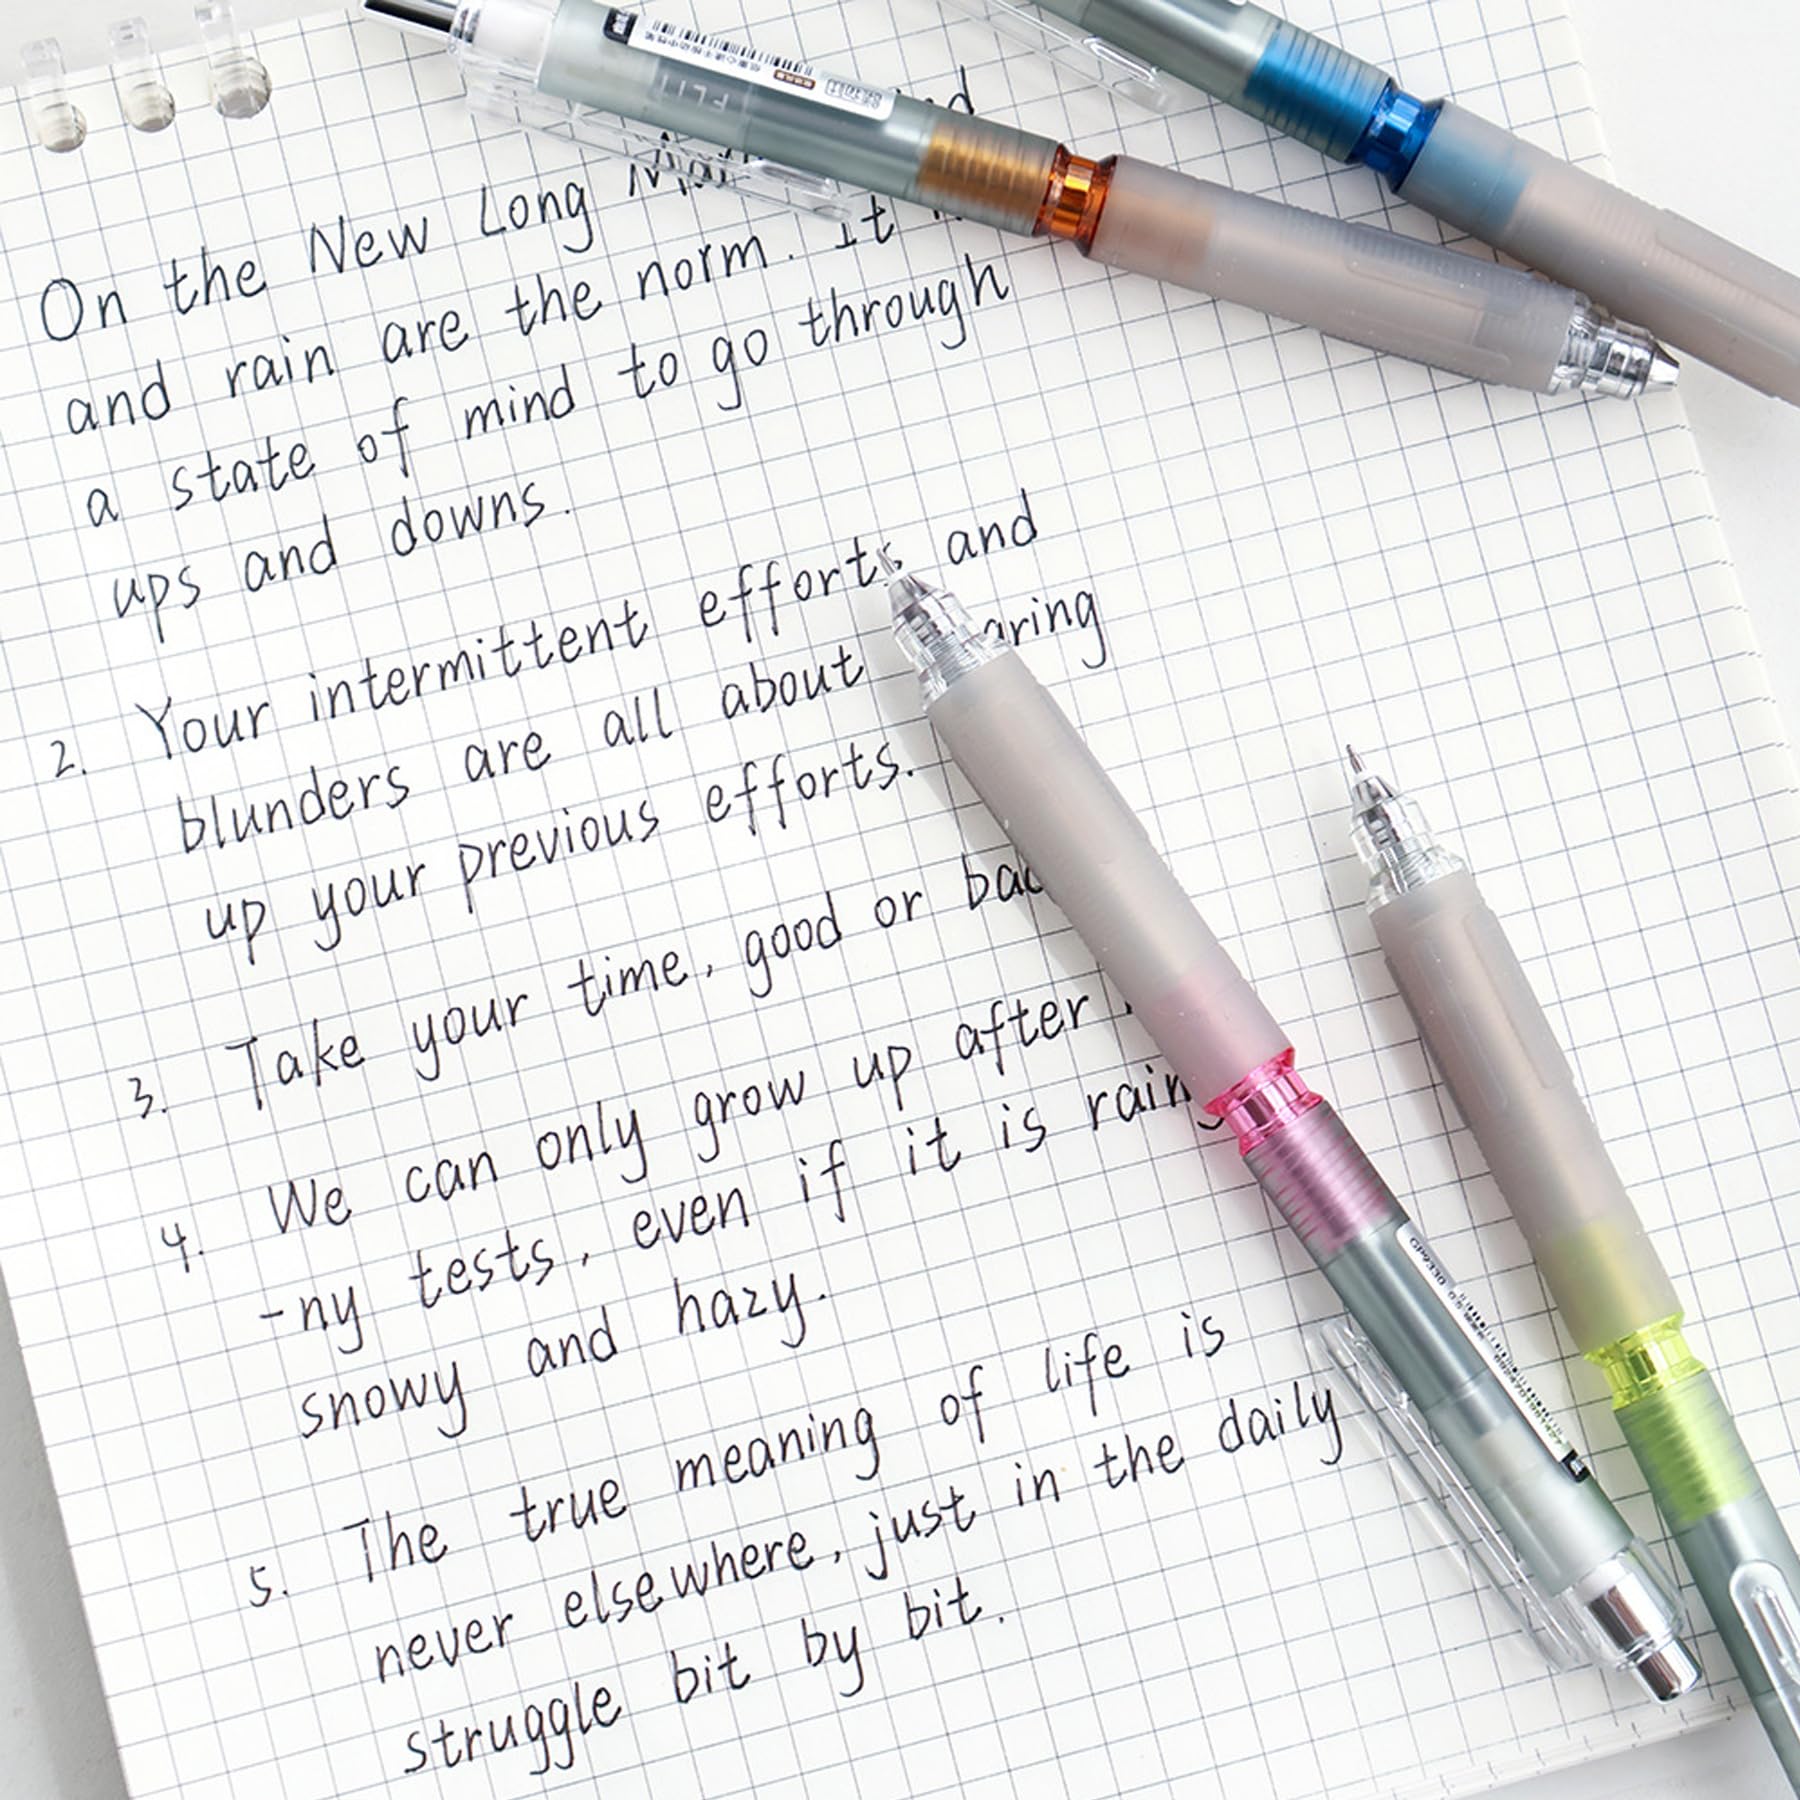 On the New Long
and rain are the norm. It
a state of mind to go through
ups and downs.
2. Your intermittent efforts and
blunders are all about
up your previous efforts.
3. Take your time, good or
4. We can only grow up after
-ny tests, even if it is
snowy and hazy.
5. The true meaning of life is
never elsewhere, just in the daily
struggle bit by bit.
GP9330